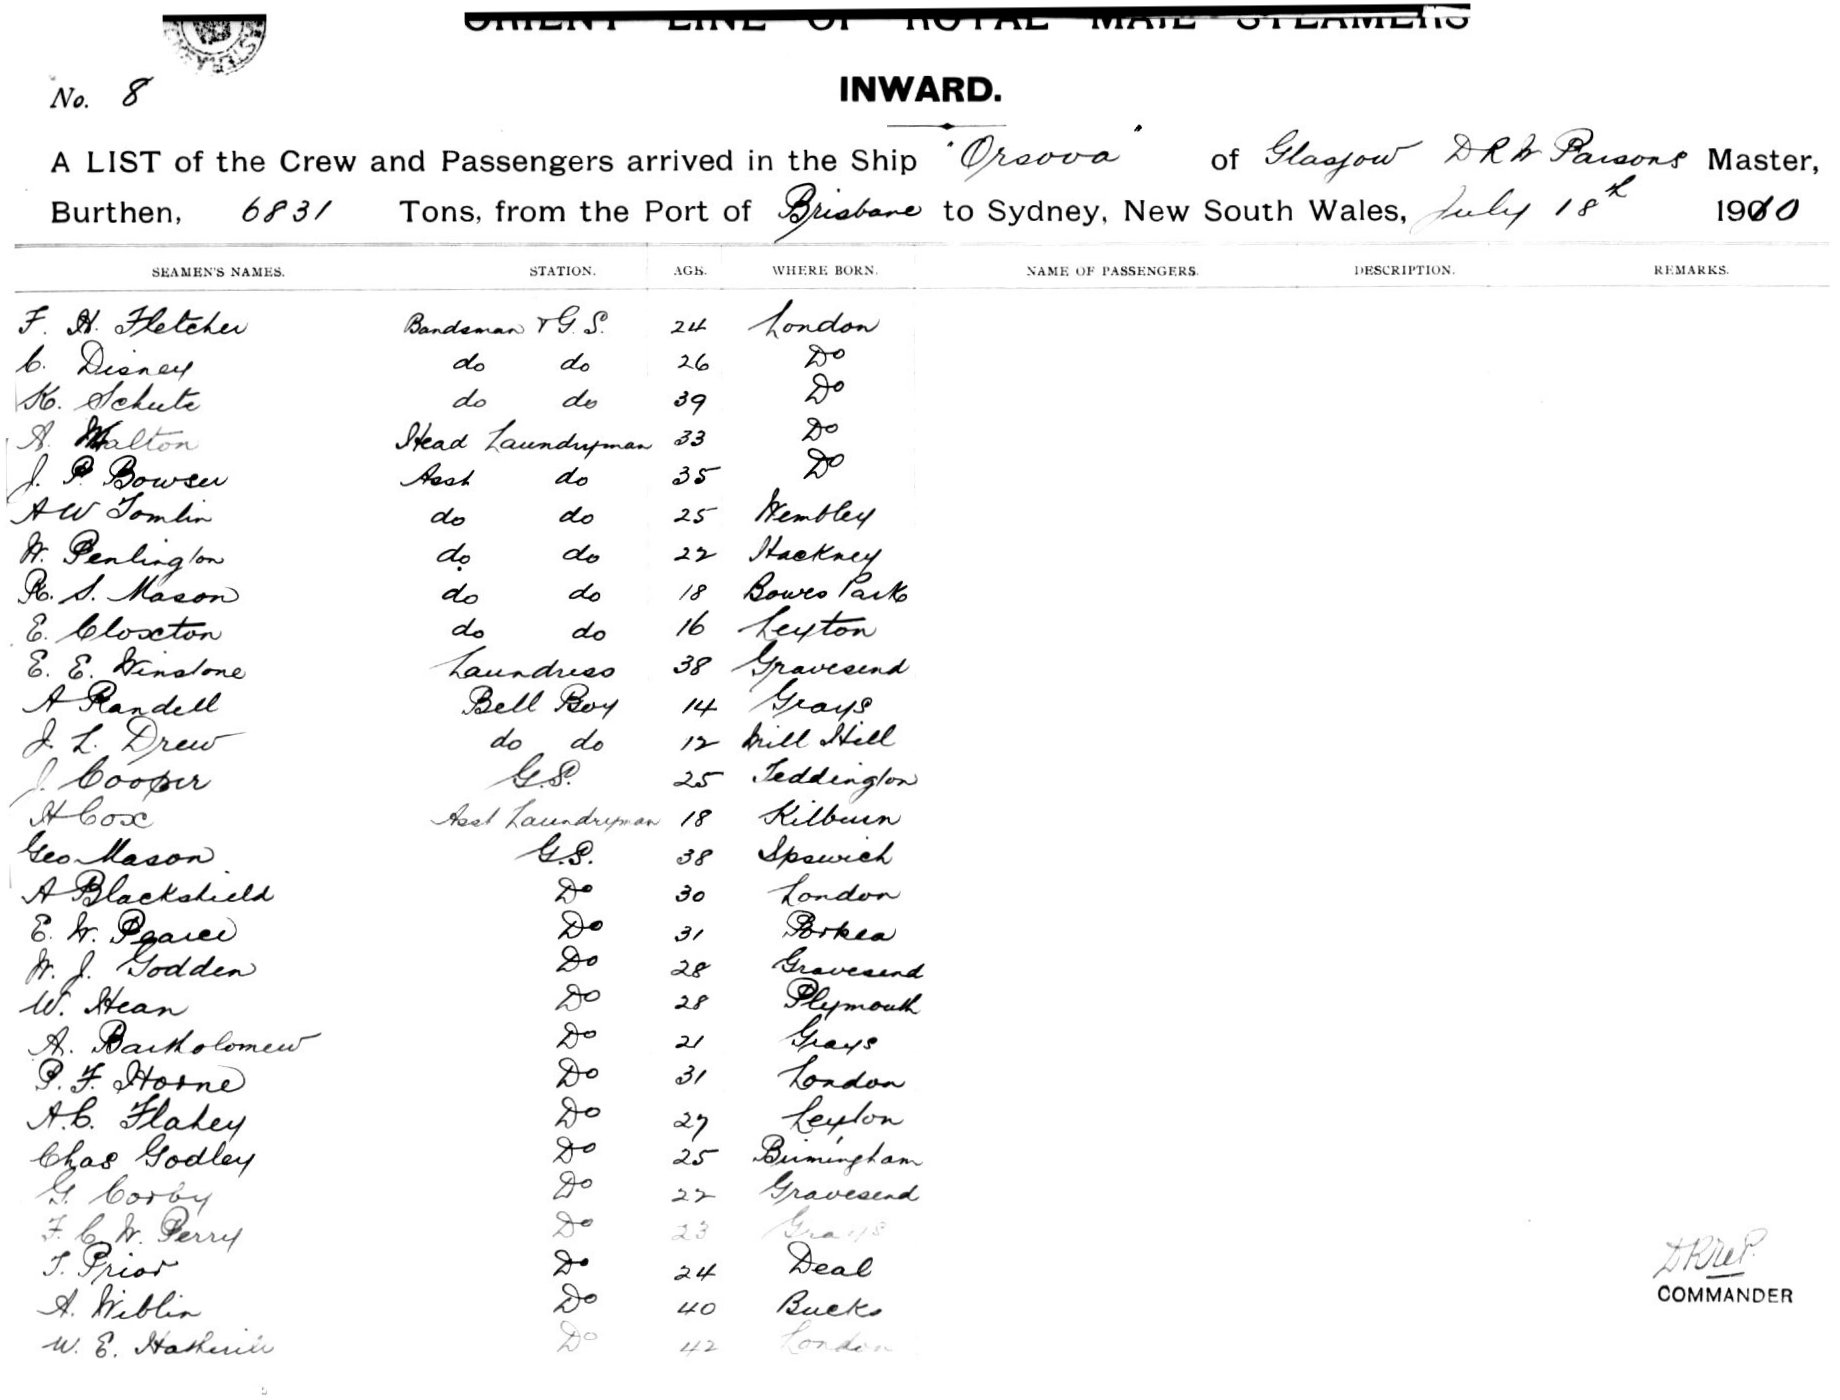 ORIENT LINE OF ROYAL MAIL STEAMERS
No. 8
INWARD.
A LIST of the Crew and Passengers arrived in the Ship "Orsova" of Glasgow D R W Parsons Master,
Burthen, 6831 Tons, from the Port of Brisbane to Sydney, New South Wales, July 18th 1910
SEAMEN'S NAMES. STATION. AGE. WHERE BORN. NAME OF PASSENGERS. DESCRIPTION. REMARKS.
F. H. Fletcher Bandsman & G.S. 24 London
C. Disney do do 26 Do
K. Schutz do do 39 Do
A. Walton Head Laundryman 33 Do
J. P. Bowser Asst do 35 Do
A W Tomlin do do 25 Wembley
W. Penlington do do 22 Hackney
R. S. Mason do do 18 Bowes Park
E. Cloxton do do 16 Leyton
E. E. Winstone Laundress 38 Gravesend
A Randell Bell Boy 14 Grays
J. L. Drew do do 12 Mill Hill
J. Cooper G.S. 25 Teddington
H Cox Asst Laundryman 18 Kilburn
Geo Mason G.S. 38 Ipswich
A Blackshield Do 30 London
E. W. Pearce Do 31
W. J. Godden Do 28 Gravesend
W. Hean Do 28 Plymouth
A. Bartholomew Do 21 Grays
P. F. Horne Do 31 London
A. C. Flahey Do 27 Leyton
Chas Godley Do 25 Birmingham
G. Corby Do 22 Gravesend
F. C. W. Perry Do 23 Grays
T. Prior Do 24 Deal
A. Wiblin Do 40 Bucks
W. E. Do 42 London
DRWP.
COMMANDER